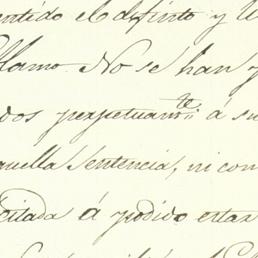 entido el distinto y
llamo. No se han
dos perpetuamte á su
aquella Sentencia, ni con
citada á podido estar